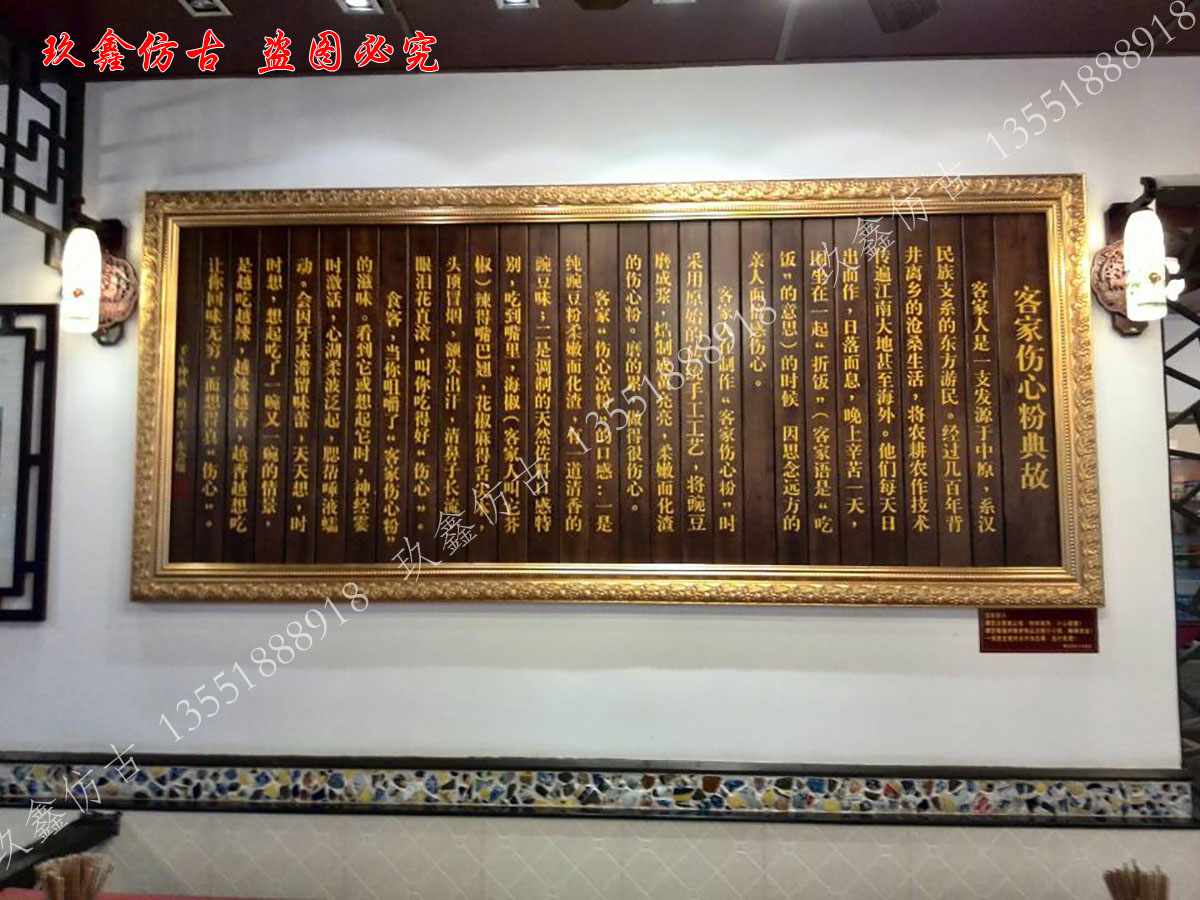 玖鑫仿古 盗图必究
客家伤心粉典故
客家人是一支发源于中原，系汉
民族支系的东方游民。经过几百年背
井离乡的沧桑生活，将农耕农作技术
传遍江南大地甚至海外。他们每天日
出而作，日落而息，晚上辛苦一天，
围坐在一起“折饭”（客家语是“吃
饭”的意思）的时候 因思念远方的
亲人而 伤心。
客家人制作“客家伤心粉”时
采用原始的 手工工艺，将豌豆
磨成浆，焙制 亮亮，柔嫩面化渣
的伤心粉。磨的累，做得很伤心。
客家“伤心凉粉”的口感：一是
纯豌豆粉柔嫩面化渣，有一道清香的
豌豆味；二是调制的天然佐料 感特
别，吃到嘴里，海椒（客家人叫 芥
椒）辣得嘴巴翘，花椒麻得舌 木，
头顶冒烟，额头出汗，清鼻子长流，
眼泪花直滚，叫你吃得好“伤心”。
食客，当你咀嚼了“客家伤心粉”
的滋味。看到它或想起它时，神经霎
时激活，心湖柔波泛起，腮帮唾液蠕
动。会因牙床滞留味蕾，天天想，时
时想，想起吃了一碗又一碗的情景，
是越吃越辣，越辣越香，越香越想吃
让你回味无穷，而想得真“伤心”。
玖鑫仿古 13551888918
玖鑫仿古 13551888918
玖鑫仿古 13551888918